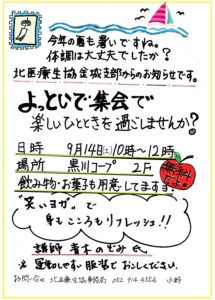 今年の夏も暑いですね。
体調は大丈夫でしたか?
北医療生協金城支部からのお知らせです。
よっといで集会で
楽しいひとときを過ごしませんか?
日時 9月14日(土)10時~12時
場所 黒川コープ 2F
飲み物・お菓子も用意してます。
無料
だよ!
"笑いヨガ"で
身もこころもリフレッシュ!!
講師 青木のぞみ 氏
※運動しやすい服装でおこしください。
お問合せ 北医療生協事務局 052 914 4554 水野